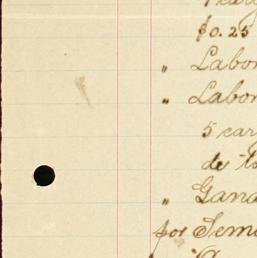 $0.25
" Labor
" Labor
5 car
de
" Gana
por Sem